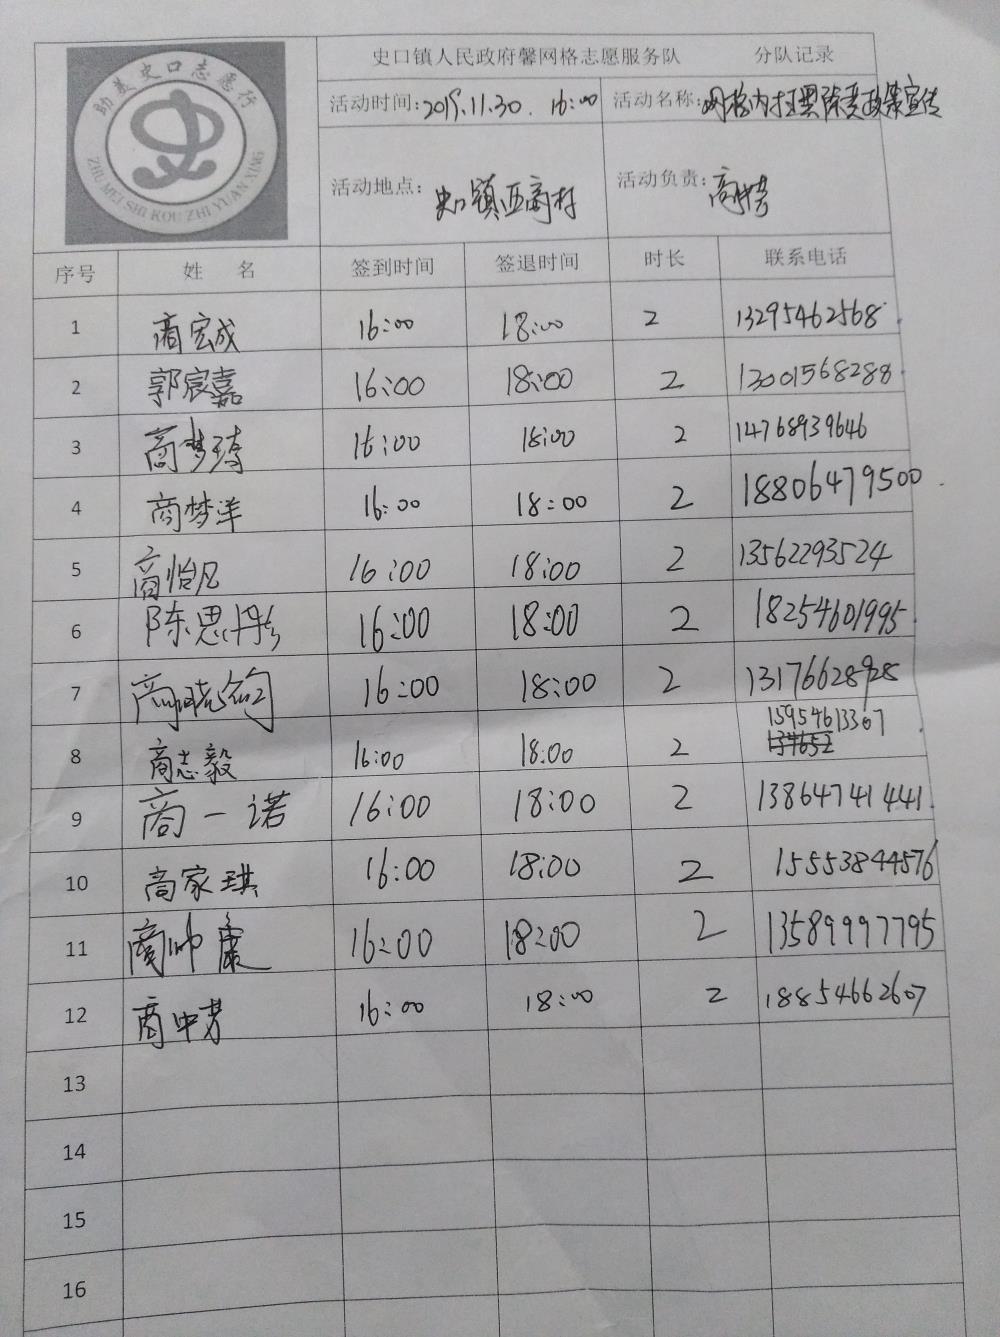 助美史口志愿行
ZHU MEI SHI KOU ZHI YUAN XING
史口镇人民政府馨网格志愿服务队 分队记录
活动时间: 2019.11.30. 16:00 活动名称: 网格内扫黑除恶政策宣传
活动地点: 史口镇西商村 活动负责:
序号 姓 名 签到时间 签退时间 时长 联系电话
1 商宏成 16:00 18:00 2 13295462568
2 郭宸嘉 16:00 18:00 2 13001568288
3 商梦琦 16:00 18:00 2 14768939646
4 商梦洋 16:00 18:00 2 18806479500
5 商怡凡 16:00 18:00 2 13562293524
6 陈思彤 16:00 18:00 2 18254601995
7 商晓筠 16:00 18:00 2 13176628928
8 商志毅 16:00 18:00 2 15954613367
134652
9 商一诺 16:00 18:00 2 13864741441
10 商家琪 16:00 18:00 2 15553844576
11 商帅康 16:00 18:00 2 13589997795
12 商中芳 16:00 18:00 2 18854662607
13
14
15
16